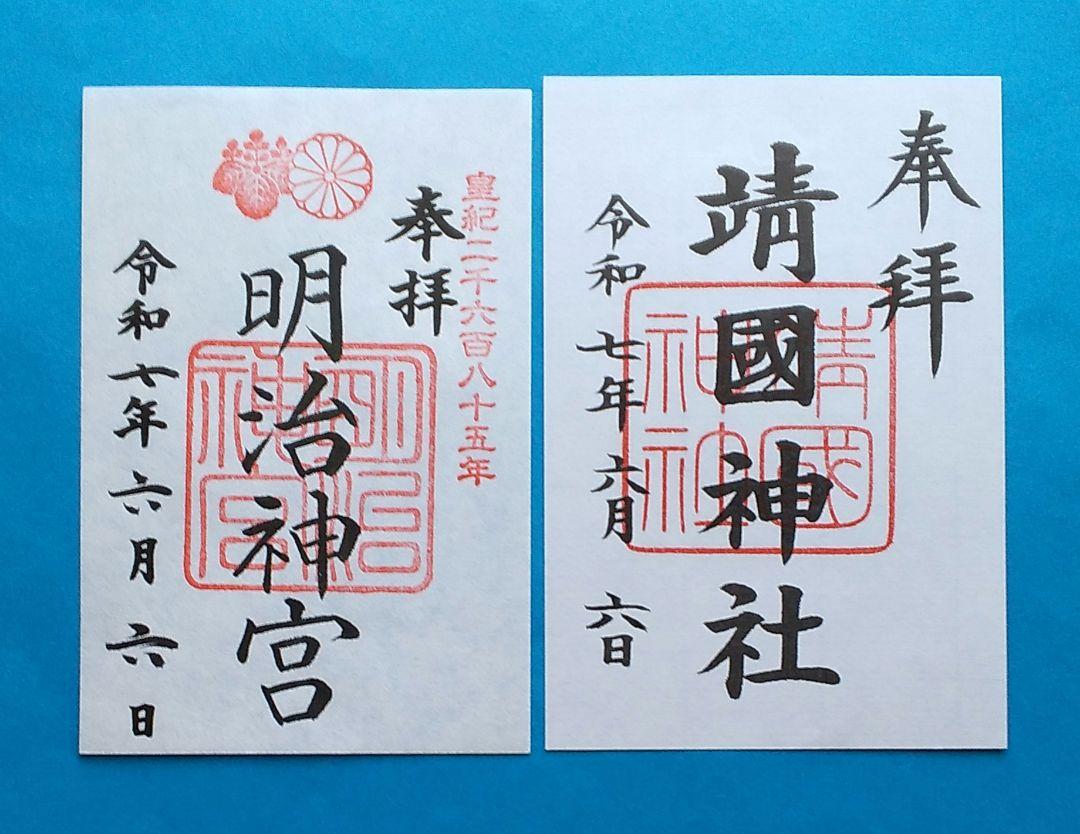 皇紀二千六百八十五年
奉拝
明治神宮
明治神宮
令和七年六月六日
奉拝
靖國神社
靖國神社
令和七年六月六日